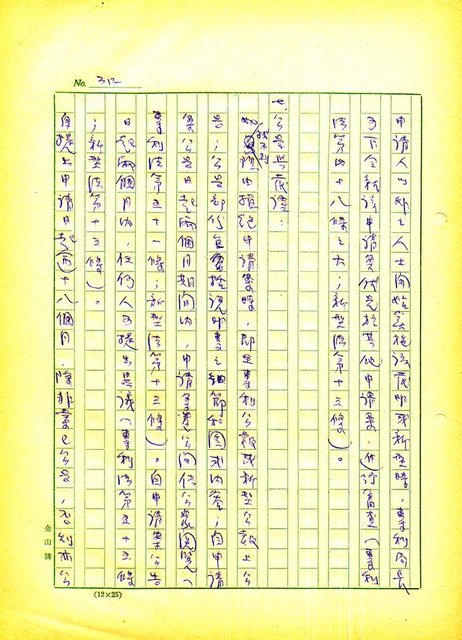 No. 312
申請人以外之人士開始實施該發明或新型時，專利局長
可下令就該申請案優先於其他申請案，作實審查（專利
法第四十八條之六；新型法第十三條）。
七、公告與異議：
如找不到拒絕申請案時，即在專利公報或新型公報上公
告；公告即係包含說明書之細節和圖式內容；自申請
案公告日起兩個月期間內，申請案應公開供公眾閱覽（
專利法第五十一條；新型法第十三條）。自申請案公告
日起兩個月內，任何人可提出異議（專利法第五十五條
；新型法第十三條）。
自提出申請日起十八個月，除非業已公告，否則亦公
金山牌
(12×25)